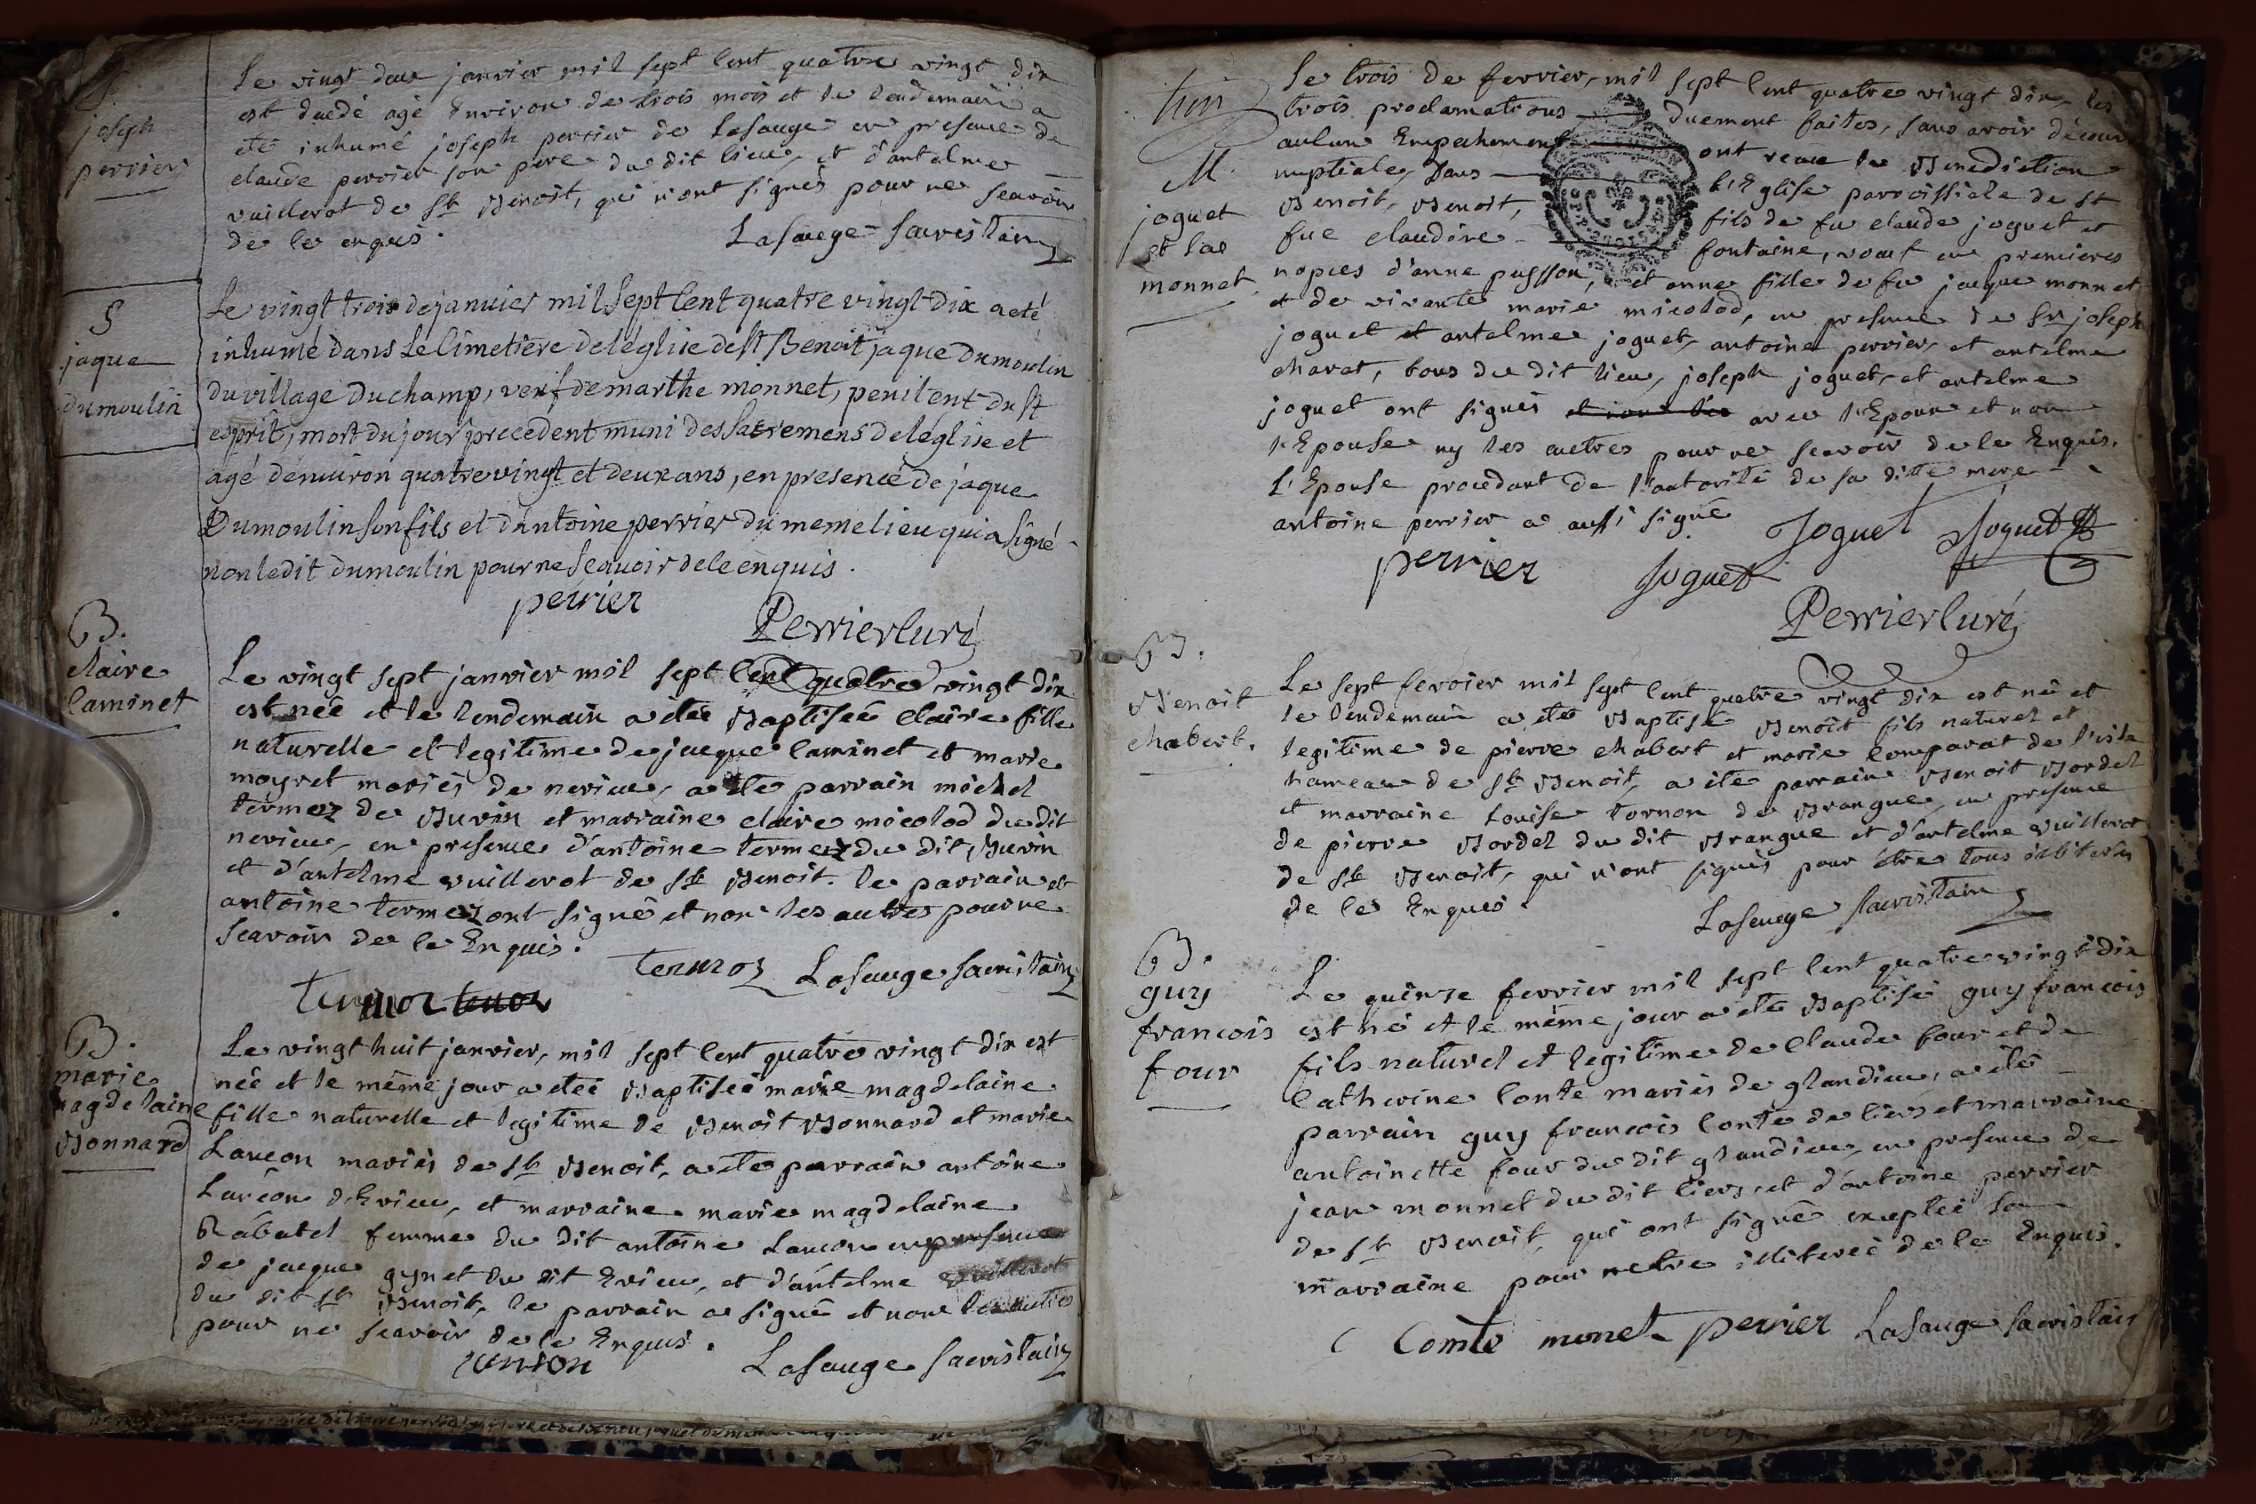 S.
joseph
perrier
Le vingt deux janvier mil sept cent quatre vingt dix
est dècdè agè Environ de trois mois et le lendemain a
eté inhumé joseph perrier de Lasauge en presence de
claude perrier son pere du dit lieu, et d'antelme
vuillerot de St Benoit, qui n'ont signès pour ne scavoir
de ce enquis.
Lasauge Sacristain
S
jaque
dumoulin
Le vingt trois de janvier mil sept cent quatre vingt dix a eté
inhumé dans le cimetière de léglise de st Benoit jaque Dumoulin
du village Duchamp, veuf de marthe monnet, penitent du st
esprit, mort du jour precedent muni des sacremens de léglise et
agé d'environ quatre vingt et deux ans, en presence de jaque
Dumoulin son fils et d'antoine perrier du meme lieu qui a signé
non ledit dumoulin pour ne scavoir de ce enquis.
perrier
Perrier Curé
B.
claire
caminet
Le vingt sept janvier mil sept cent quatre vingt dix
est née et le lendemain a etée Baptiseé claire fille
naturelle et legitime de jacque caminet et marie
moyret mariés de nerieu, a ete parrain michel
termoz de Buvin et marraine claire micolod du dit
nerieu, en presence d'antoine termoz du dit Buvin
et d'antelme vuillerot de St Benoit. le parrain et
antoine termoz ont signé et non les autres pour ne
scavoir de ce Enquis.
termoz Lasauge Sacristain
termoz
B.
marie
magdelaine
Bonnard
Le vingt huit janvier, mil sept cent quatre vingt dix est
née et le même jour a eteé Baptiseé marie magdelaine
fille naturelle et legitime de Benoit Bonnard et marie
Lancon mariés de St Benoit, a ete parrain antoine
Lancon d'Evieu, et marraine marie magdelaine
Rabatel femme du dit antoine Lancon en presence
de jacque gynet du dit Evieu, et d'antelme vuillerot
du dit St Benoit, le parrain a signé et non les autres
pour ne scavoir de ce Enquis.
Lasauge Sacristain
huit
M.
joguet
et la
monnet
Le trois de fevrier, mil sept cent quatre vingt dix, les
trois proclamations duement faites, sans avoir découvert
aucun Empechement ont recue la Benediction
nuptiale, Dans L'Eglise parroissiale de St
Benoit, Benoit, fils de fu claude joguet et
fue claudine fontaine, veuf en premieres
nopces d'anne pusson, et anne fille de fu jacque monnet
et de vivante marie micolod, en presence de Sr joseph
joguet et antelme joguet, antoine perrier, et antelme
charat, tous du dit lieu, joseph joguet, et antelme
joguet ont signés avec l'Epoux et non
l'Epouse ny les autres pour ne scavoir de ce Enquis.
L'Epouse procedant de l'autorité de sa ditte mere
antoine perrier a aussi signé
Joguet Joguet
perrier Joguet
Perrier Curé
B.
Benoit
chabert.
Le sept fevrier mil sept cent quatre vingt dix est né et
le lendemain a ete Baptisé Benoit fils naturel et
legitime de pierre chabert et marie comparat de l'isle
hameau de St Benoit, a ete parrain Benoit Bordel
et marraine Louise tornon de Brangue, en presence
de pierre Bordel du dit Brangue et d'antelme vuillerot
de St Benoit, qui n'ont signés pour être tous illiterés
de ce Enquis.
Lasauge Sacristain
B.
guy
francois
four
Le quinze fevrier mil sept cent quatre vingt dix
est né et le même jour a ete Baptisé guy francois
fils naturel et legitime de Claude four et de
Catherine Conte mariés de glandieu, a ete
parrain guy francois Conte de liers et marraine
antoinette four du dit glandieu, en presence de
jean monnet du dit liers, et d'antoine perrier
de St Benoit, qui ont signé exceptée la
marraine pour netre illitereé de ce Enquis.
Comte monet perrier Lasauge Sacristain